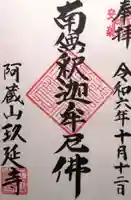 奉拝
令和六年十月十二日
南無釈迦牟尼佛
阿蔵山玖延寺